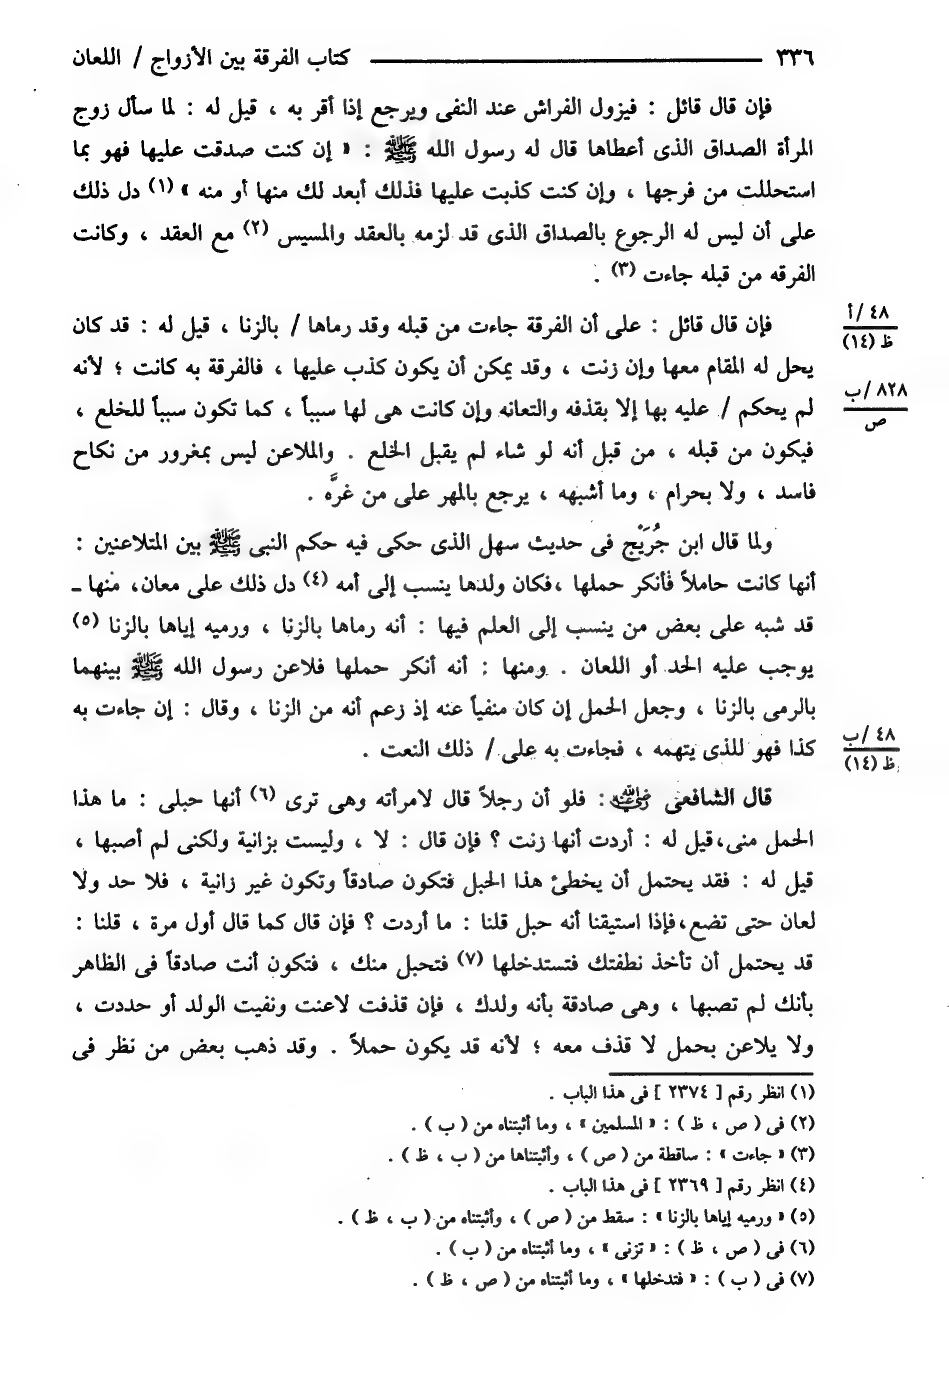 ٣٣٦ كتاب الفرقة بين الأزواج / اللعان
فإن قال قائل : فيزول الفراش عند النفى ويرجع إذا أقر به ، قيل له : لما سأل زوج
المرأة الصداق الذى أعطاها قال له رسول الله ﷺ : « إن كنت صدقت عليها فهو بما
استحللت من فرجها ، وإن كنت كذبت عليها فذلك أبعد لك منها أو منه » (١) دل ذلك
على أن ليس له الرجوع بالصداق الذى قد لزمه بالعقد والمسيس (٢) مع العقد ، وكانت
الفرقه من قبله جاءت (٣) .
فإن قال قائل : على أن الفرقة جاءت من قبله وقد رماها / بالزنا ، قيل له : قد كان
٤٨ /أ
ظ (١٤)
يحل له المقام معها وإن زنت ، وقد يمكن أن يكون كذب عليها ، فالفرقة به كانت ؛ لأنه
لم يحكم / عليه بها إلا بقذفه والتعانه وإن كانت هى لها سبباً ، كما تكون سبباً للخلع ،
٨٢٨ /ب
ص
فيكون من قبله ، من قبل أنه لو شاء لم يقبل الخلع . والملاعن ليس بمغرور من نكاح
فاسد ، ولا بحرام ، وما أشبهه ، يرجع بالمهر على من غرَّه .
ولما قال ابن جُرَيْج فى حديث سهل الذى حكى فيه حكم النبى ﷺ بين المتلاعنين :
أنها كانت حاملاً فأنكر حملها ،فكان ولدها ينسب إلى أمه (٤) دل ذلك على معان، منها ـ
قد شبه على بعض من ينسب إلى العلم فيها : أنه رماها بالزنا ، ورميه إياها بالزنا (٥)
يوجب عليه الحد أو اللعان . ومنها : أنه أنكر حملها فلاعن رسول الله ﷺ بينهما
بالرمى بالزنا ، وجعل الحمل إن كان منفياً عنه إذ زعم أنه من الزنا ، وقال : إن جاءت به
كذا فهو للذى يتهمه ، فجاءت به على / ذلك النعت .
٤٨ /ب
ظ (١٤)
قال الشافعى رضي الله عنه : فلو أن رجلاً قال لامرأته وهى ترى (٦) أنها حبلى : ما هذا
الحمل منى،قيل له : أردت أنها زنت ؟ فإن قال : لا ، وليست بزانية ولكنى لم أصبها ،
قيل له : فقد يحتمل أن يخطئ هذا الحبل فتكون صادقاً وتكون غير زانية ، فلا حد ولا
لعان حتى تضع،فإذا استيقنا أنه حبل قلنا : ما أردت ؟ فإن قال كما قال أول مرة ، قلنا :
قد يحتمل أن تأخذ نطفتك فتستدخلها (٧) فتحبل منك ، فتكون أنت صادقاً فى الظاهر
بأنك لم تصبها ، وهى صادقة بأنه ولدك ، فإن قذفت لاعنت ونفيت الولد أو حددت ،
ولا يلاعن بحمل لا قذف معه ؛ لأنه قد يكون حملاً . وقد ذهب بعض من نظر فى
(١) انظر رقم [ ٢٣٧٤ ] فى هذا الباب .
(٢) فى ( ص ، ظ ) : « المسلمين » ، وما أثبتناه من ( ب ) .
(٣) « جاءت » : ساقطة من ( ص ) ، وأثبتناها من ( ب ، ظ ) .
(٤) انظر رقم [ ٢٣٦٩ ] فى هذا الباب .
(٥) « ورميه إياها بالزنا » : سقط من ( ص ) ، وأثبتناه من ( ب ، ظ ) .
(٦) فى ( ص ، ظ ) : « تزنى » ، وما أثبتناه من ( ب ) .
(٧) فى ( ب ) : « فتدخلها » ، وما أثبتناه من ( ص ، ظ ) .